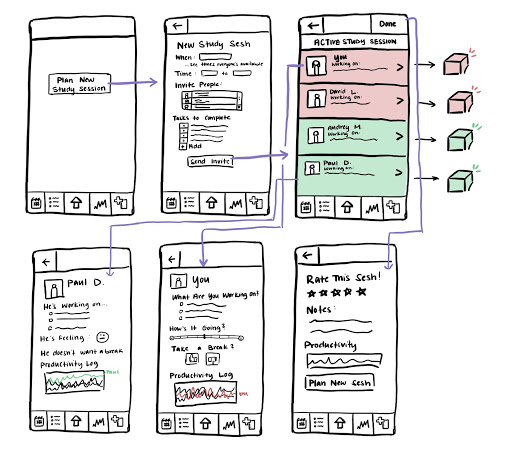 Plan New
Study Session
New Study Sesh
When:
... see times everyone's available
Time: to
Invite People:
Tasks to Complete
Add
Send Invite
Done
ACTIVE STUDY SESSION
You
Working on:
David L.
Working on:
Andrey M.
Working on:
Paul D.
Working on:
Paul D.
He's Working on...
He's Feeling:
He doesn't want a break
Productivity Log
Paul
You
What Are You Working on?
How's It Going?
Take a Break?
Productivity Log
You
Rate This Sesh!
Notes:
Productivity
Plan New Sesh